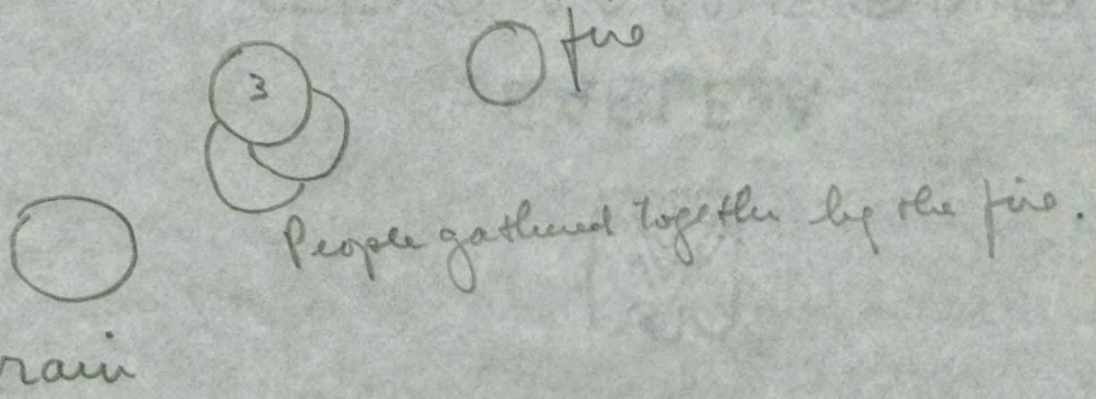 fire
3
People gathered together by the fire.
rain